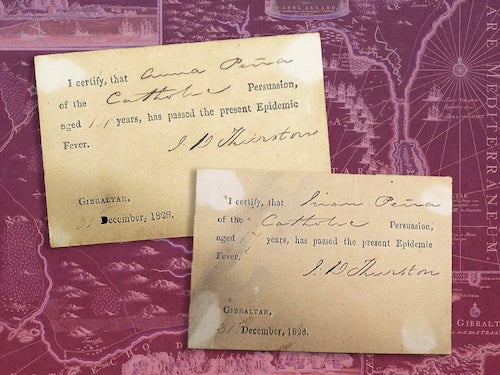 CAREL ALLARD
I certify, that Anna Peña
of the Catholic Persuasion,
aged years, has passed the present Epidemic
Fever.
J. D Thurston
GIBRALTAR,
31 December, 1828.
I certify, that Juan Peña
of the Catholic Persuasion,
aged years, has passed the present Epidemic
Fever.
J. D Thurston
GIBRALTAR,
31 December, 1828.
GIBRALT